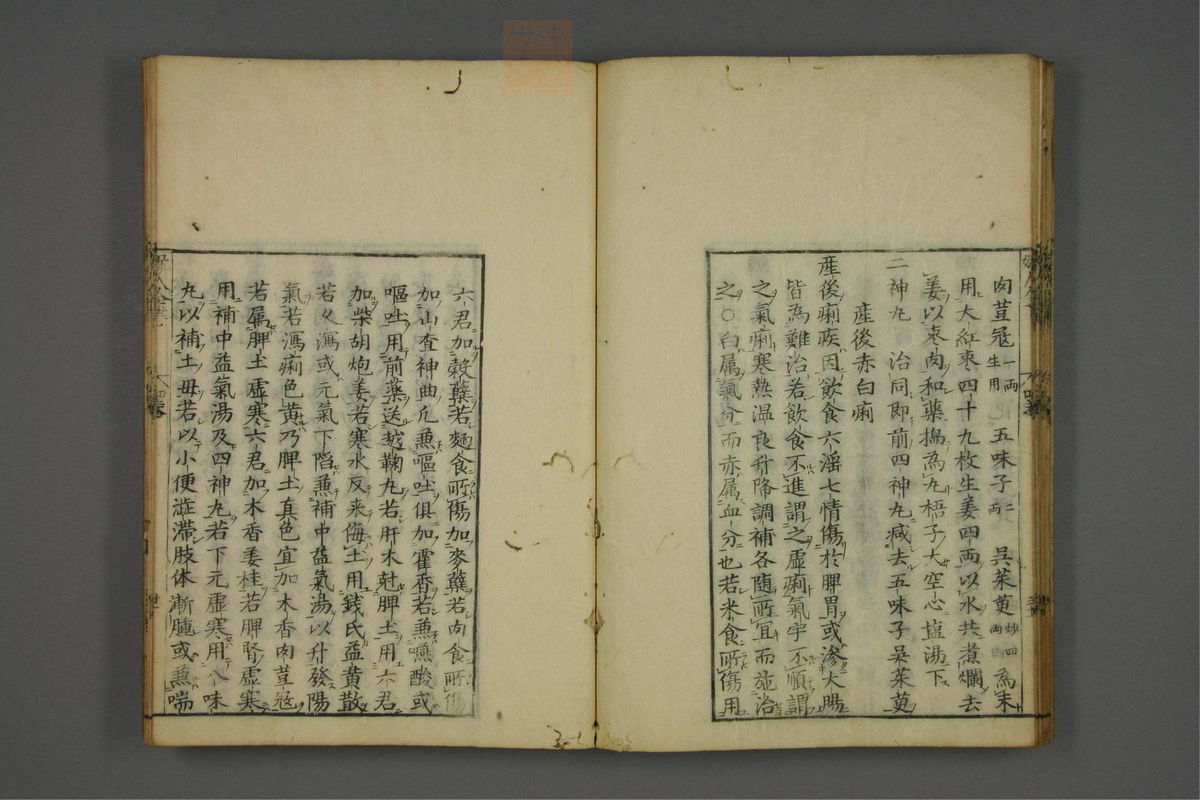 肉荳寇一両生用 五味子二両 呉茱萸炒四両 為末
用大紅棗四十九枚生姜四両以水共煮爛去
姜以棗肉和藥搗為丸梧子大空心塩湯下
二神丸 治同即前四神丸减去五味子呉茱萸
産後赤白痢
産後痢疾因飲食六淫七情傷於脾胃或滲大腸
皆為難治若飲食不進謂之虚痢氣宇不順謂
之氣痢寒熱温良升降調補各随所宜而施治
之○白属氣分而赤属血分也若米食所傷用
六君加穀蘖若麺食所傷加麥蘖若肉食所傷
加山査神曲凢兼嘔吐俱加藿香若兼嚥酸或
嘔吐用前藥送越鞠丸若肝木尅脾土用六君
加柴胡炮姜若寒水反来侮土用錢氏益黄散
若久瀉或元氣下陥兼補中益氣湯以升發陽
氣若瀉痢色黄乃脾土真色宜加木香肉荳寇
若属脾土虚寒六君加木香姜桂若脾腎虚寒
用補中益氣湯及四神丸若下元虚寒用八味
丸以補土毋若以小便澁滞肢体漸腫或兼喘